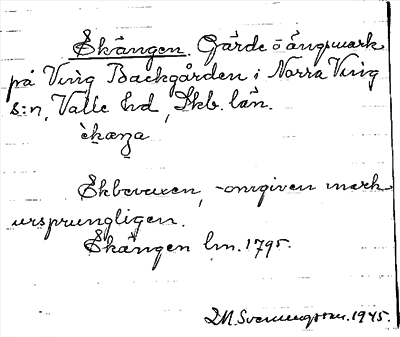 Ekängen. Gärde o ängsmark
på Ving Backgården i Norra Ving
s:n, Valle hd, Skb. län.
Ekbevuxen, -omgiven mark
ursprungligen.
Ekängen lm. 1795.
Svenungsson. 1945.